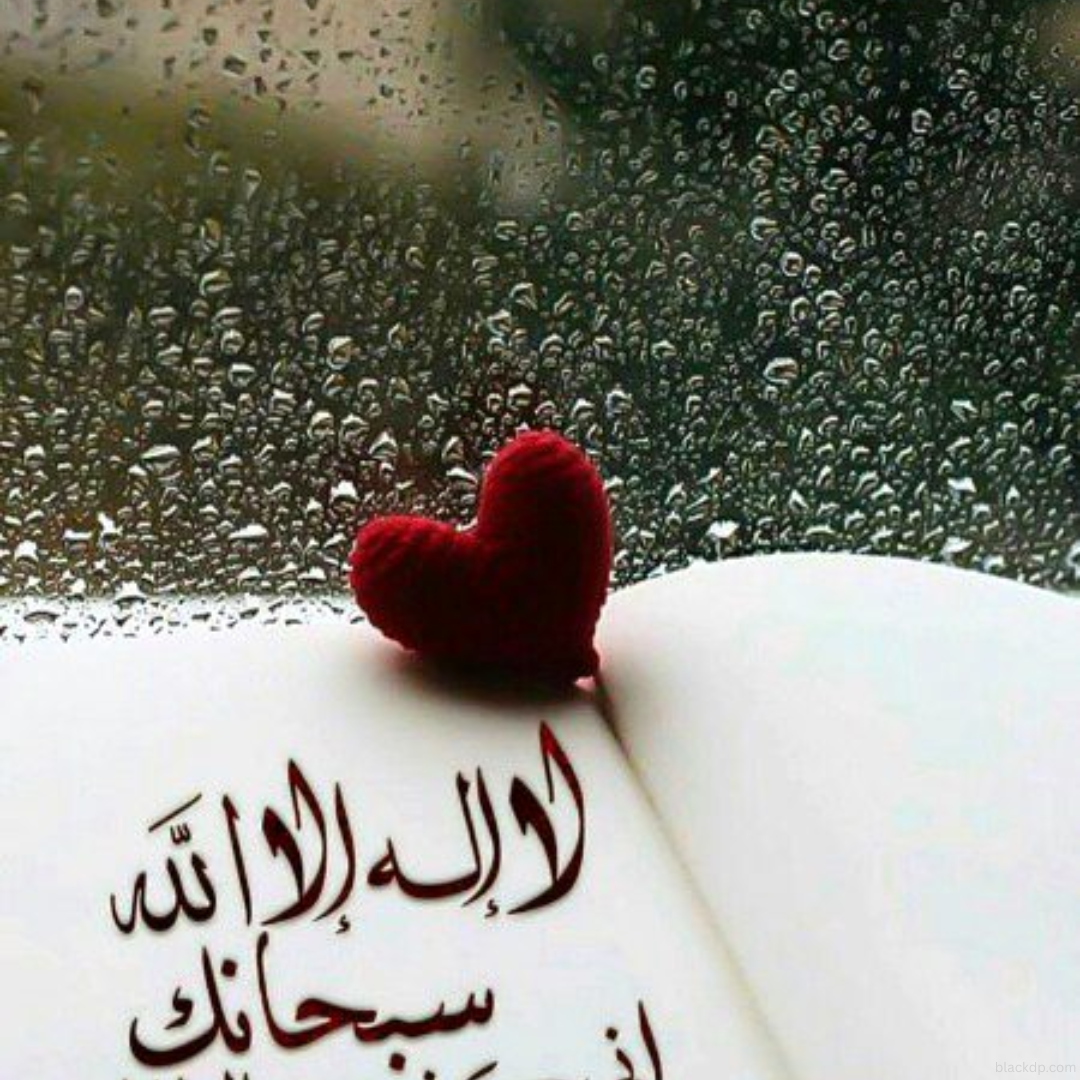 لا إله إلا الله
سبحانك
blackdp.com